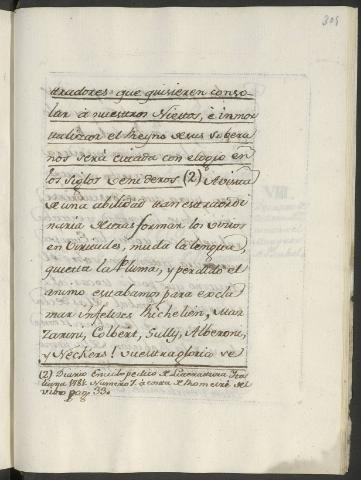 305
tradores que quisieren conso-
lar à nuestros Nietos, è inmor
talizar el Reyno de sus sobera
nos será citada con elogio en
los siglos venideros (2) A vista
de una abilidad tan estraordi
naria de transformar los vicios
en Virtudes, muda la lengua,
quieta la Pluma, y perdido el
animo estabamos para excla
mar infelizes Richelieu, Maz
zarini, Colbert, Sully, Alberoni,
y Neckers! vuestra gloria se
(2) Diario Enciclopedico de Literatura
1781. Numero 7. à costa de
pag. 33.